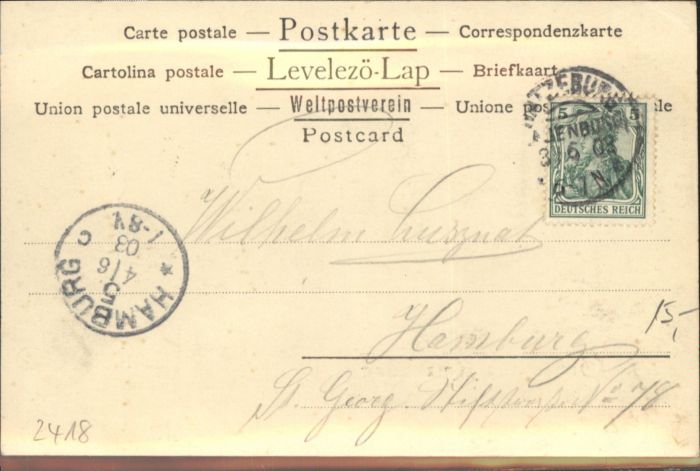 Carte postale — Postkarte — Correspondenzkarte
Cartolina postale — Levelezö-Lap — Briefkaart
Union postale universelle — Weltpostverein — Unione postale
Postcard
5 5
3 6 03
DEUTSCHES REICH
Wilhelm
HAMBURG 5 C
4/6
03
7-8V
Hamburg
15,-
St. Georg No 78
2418